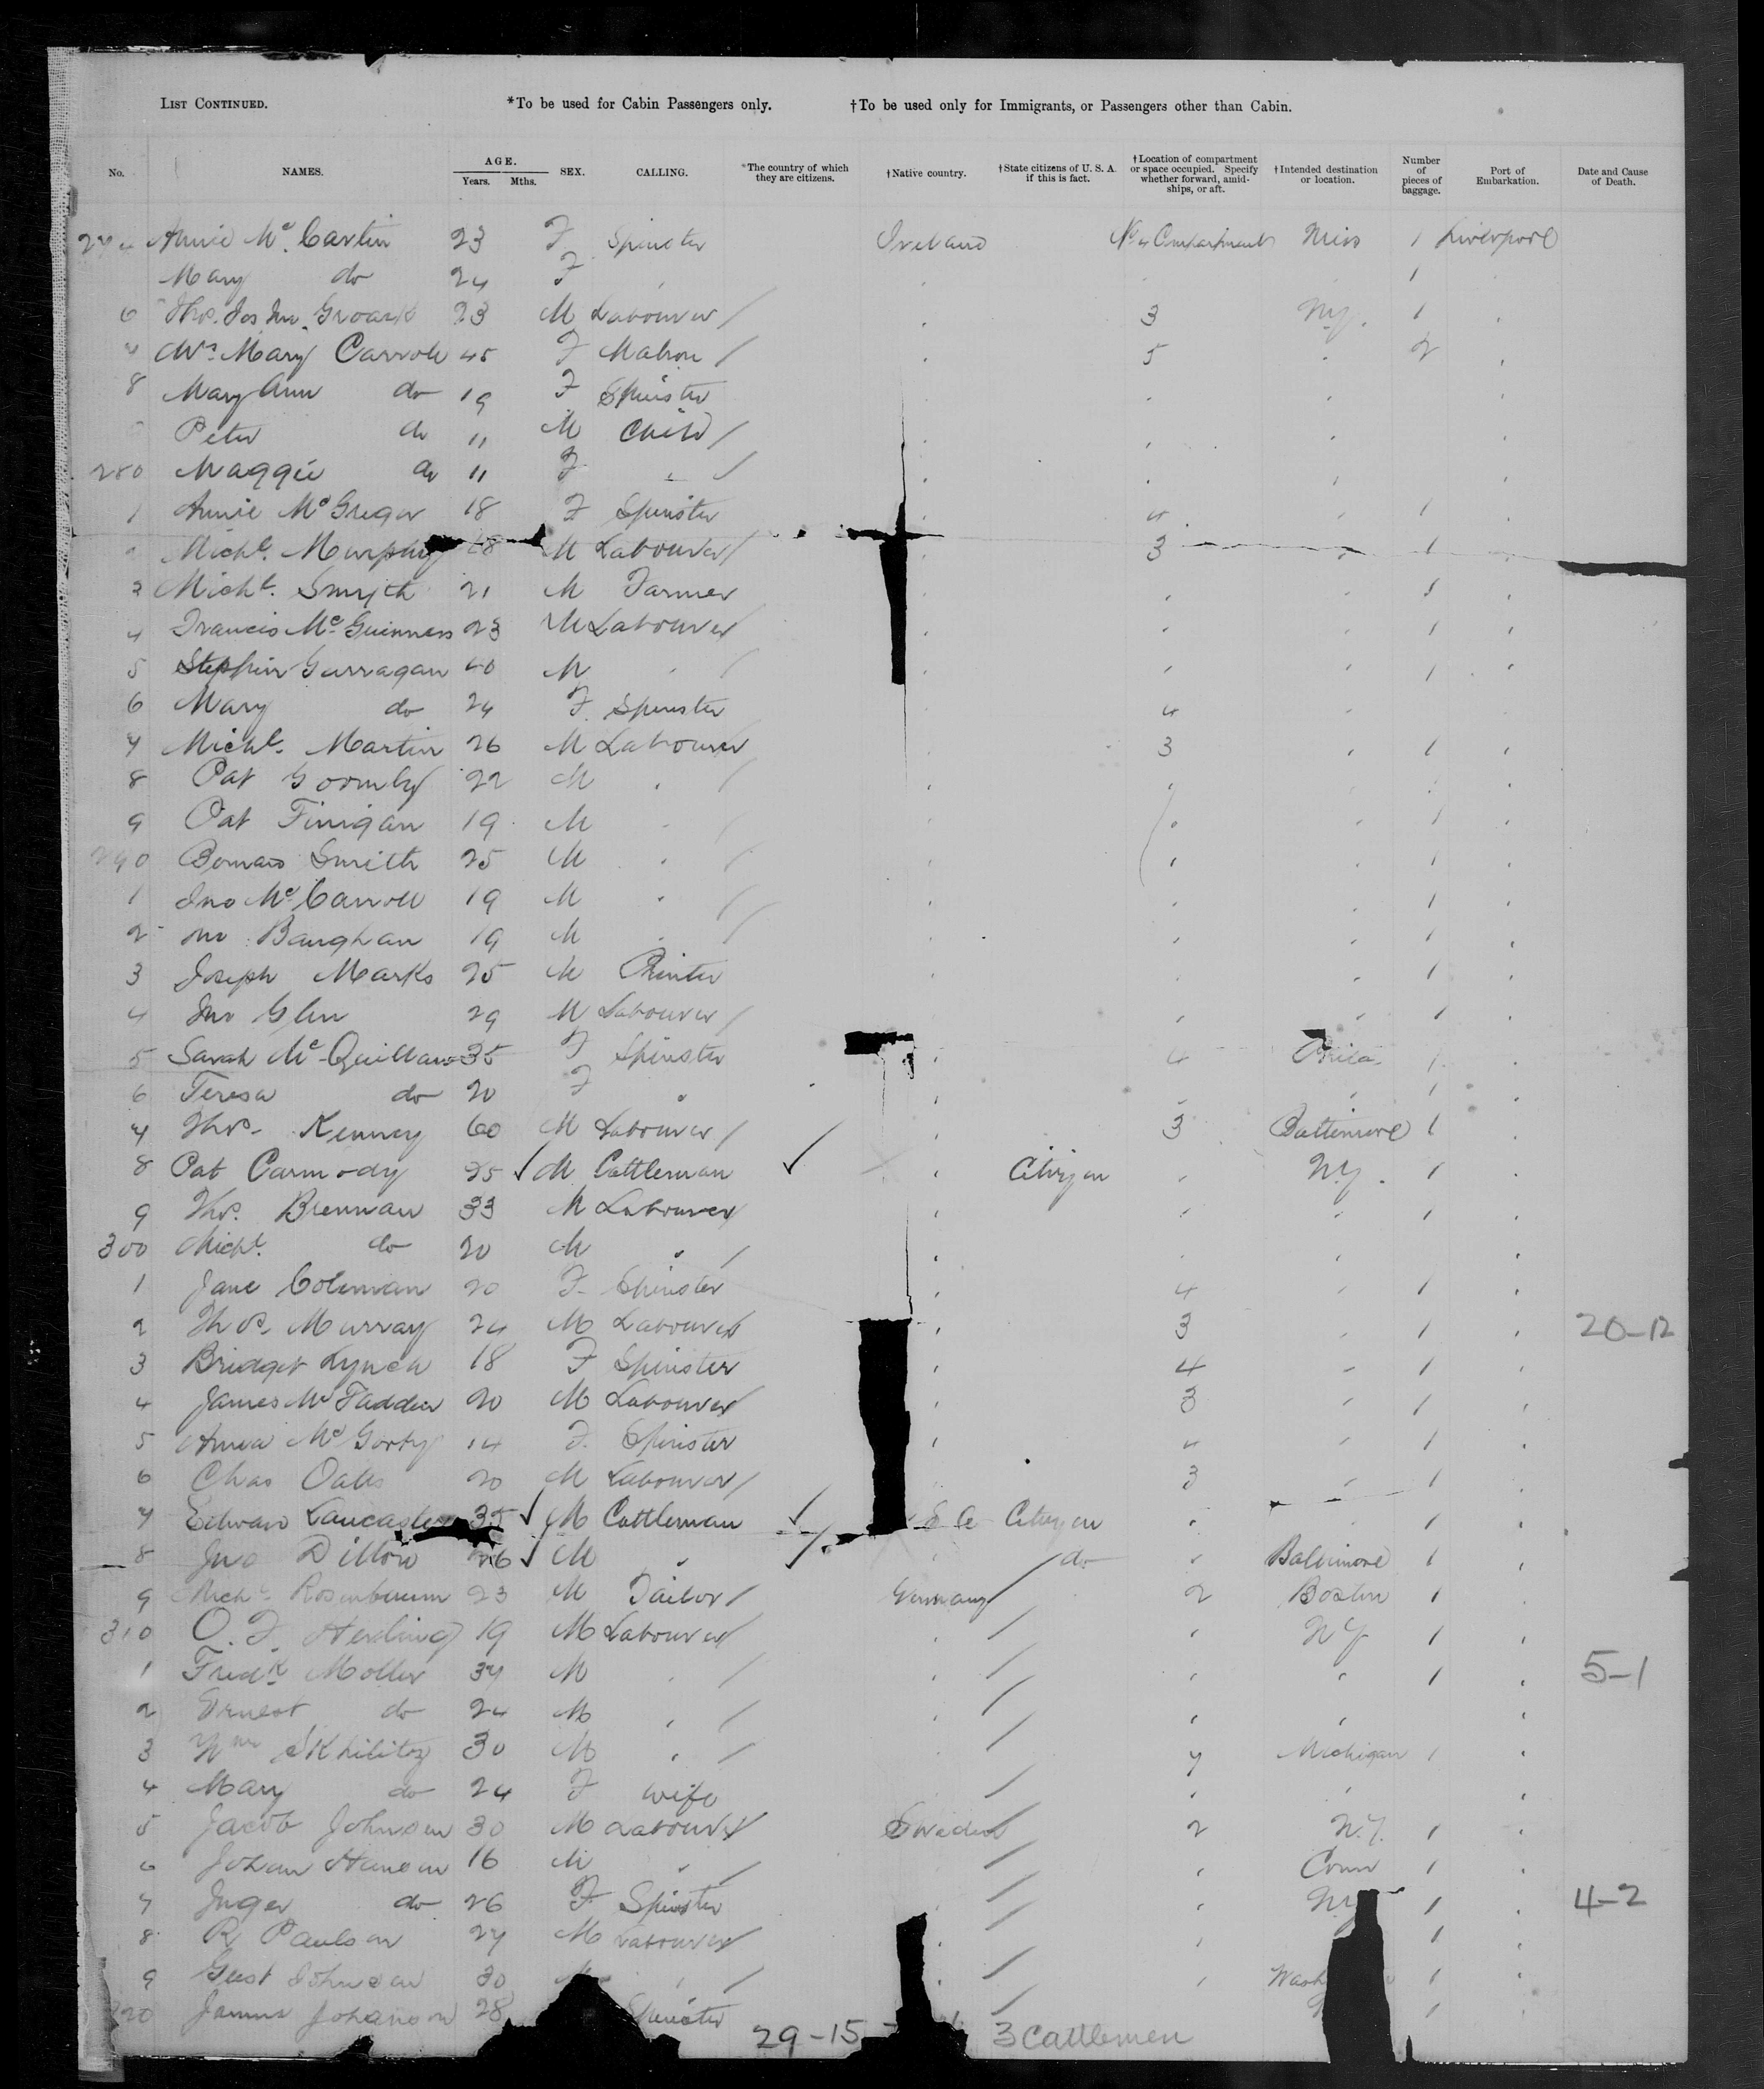 LIST CONTINUED. *To be used for Cabin Passengers only. †To be used only for Immigrants, or Passengers other than Cabin.
No. NAMES. AGE. Years. Mths. SEX. CALLING. *The country of which they are citizens. †Native country. †State citizens of U. S. A. if this is fact. †Location of compartment or space occupied. Specify whether forward, amidships, or aft. †Intended destination or location. Number of pieces of baggage. Port of Embarkation. Date and Cause of Death.
Annie Mc Cartin 23 F Spinster Ireland No 4 Compartment Miss 1 Liverpool
Mary do 24 F 1
6 Thos. Jos Groark 23 M Labourer 3 N.Y. 1
7 Mrs Mary Carroll 45 F Matron 5 2
8 Mary Ann do 19 F Spinster
Peter do 11 M Child
280 Maggie do 11 F
1 Annie McGregor 18 F Spinster 4 1
Michl. Murphy M Labourer 3 1
3 Michl. Smyth 21 M Farmer 1
4 Francis McGuinness 23 M Labourer 1
5 Garragan 40 M 1
6 Mary do 24 F Spinster 4
7 Michl. Martin 26 M Labourer 3 1
8 Pat Gormley 22 M
9 Pat Finigan 19 M 1
290 Smith 25 M 1
1 Jno McCarroll 19 M 1
2 Jno Baughan 19 M 1
3 Joseph Marks 25 M Printer 1
4 Jno Glen 29 M Labourer 1
5 Sarah Mc Quillan 35 F Spinster 4 Phila 1
6 Teresa do 20 F 1
7 Thos. Kenney 60 M Labourer 3 Baltimore 1
8 Pat Carmody 25 M Cattleman Citizen N.Y. 1
9 Thos. Brennan 33 M Labourer 1
300 Michl. do 20 M
1 Jane Coleman 20 F Spinster 4 1
2 Thos. Murray 24 M Labourer 3 1 20-12
3 Bridget Lynch 18 F Spinster 4 1
4 James McFadden 20 M Labourer 3 1
5 McGorty 14 F Spinster 4 1
6 Chas Oates 20 M Labourer 3 1
7 Edward Lancaster 35 M Cattleman Citizen 1
8 Jno Dillon 26 M do Baltimore 1
9 Rosenbaum 23 M Tailor Germany 2 Boston 1
310 O. F. 19 M Labourer N Y 1
1 Fredk Moller 37 M 1 5-1
2 Ernest do 24 M
3 Wm 30 M 7 Michigan 1
4 Mary do 24 F wife
5 Jacob Johnson 30 M Labourer Sweden 2 N.Y. 1
6 Johan Hanson 16 M Conn 1
7 Inger do 26 F Spinster 1 4-2
8 R Paulson 27 M Labourer 1
9 Gust Johnson 30 1
320 Johanson 28 Spinster 1
29-15 3 Cattlemen